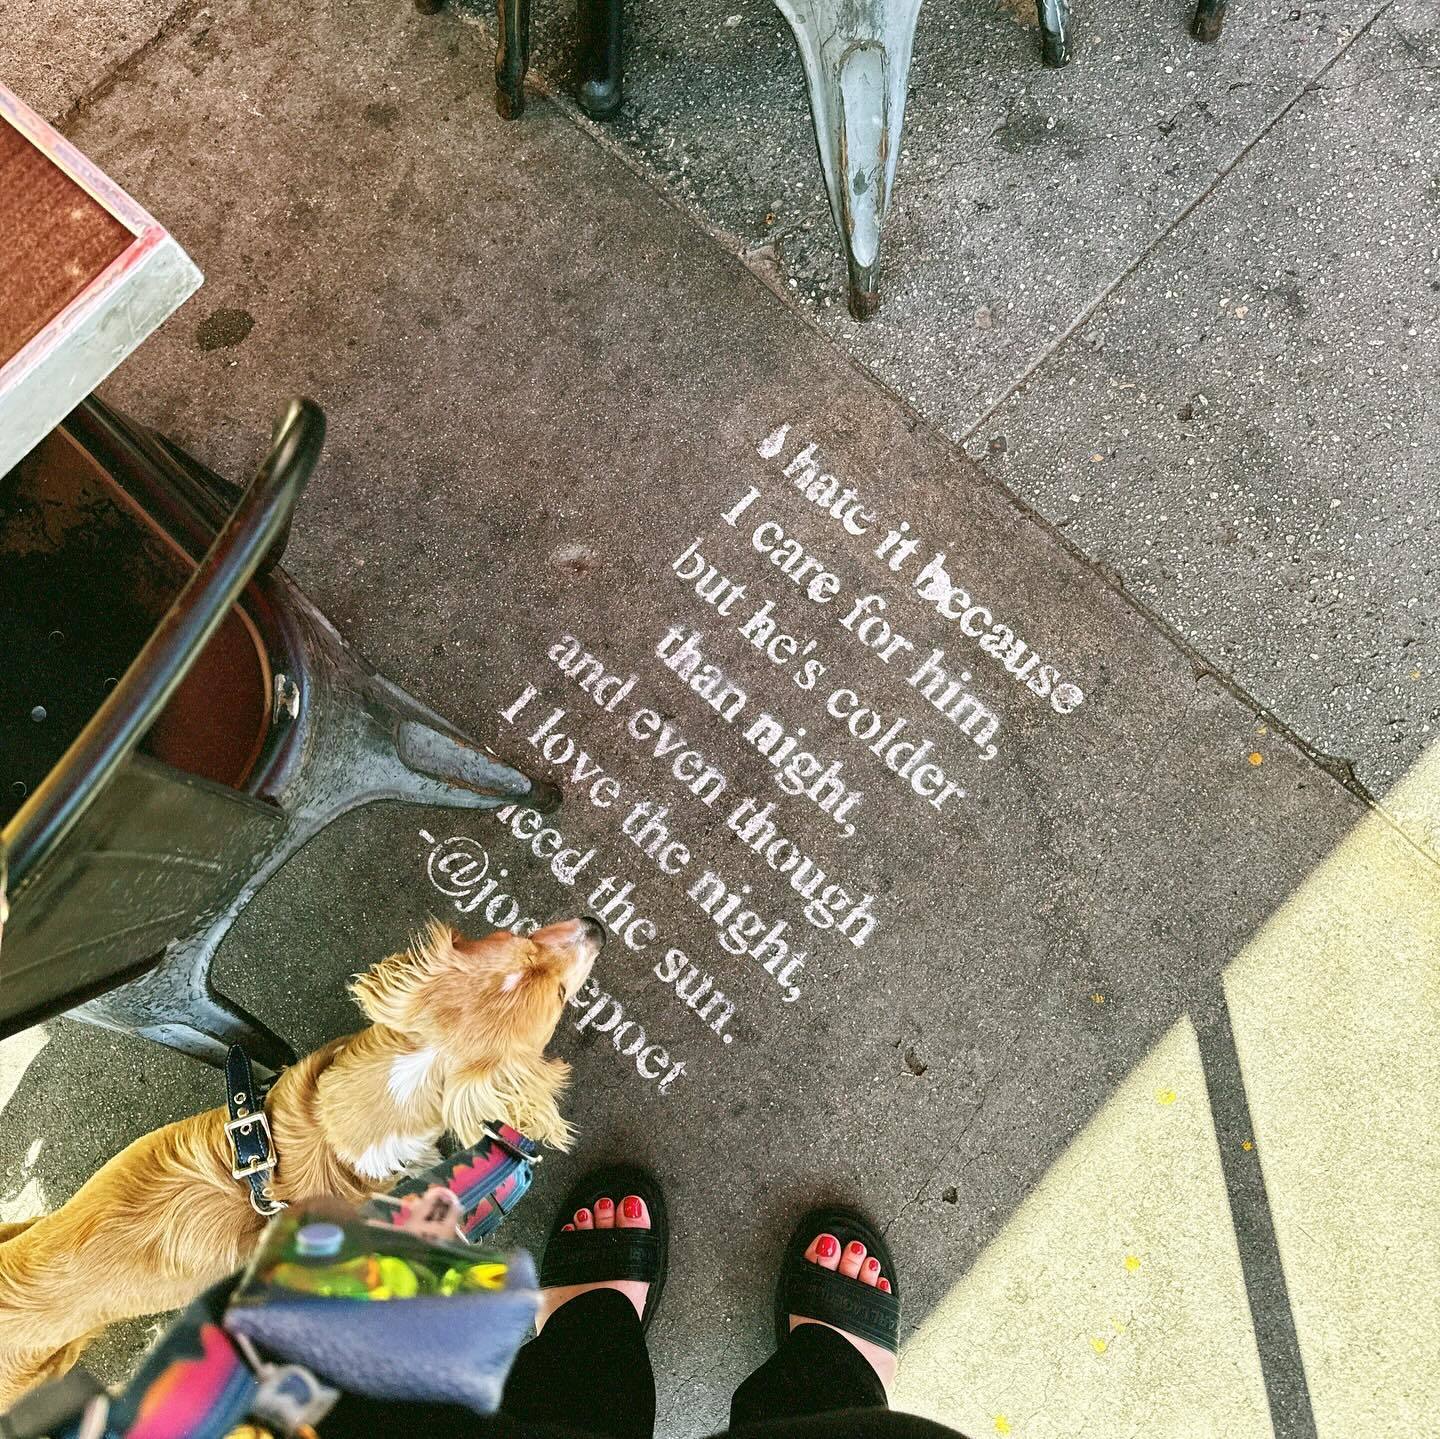 I hate it because
I care for him,
but he's colder
than night,
and even though
I love the night,
need the sun.